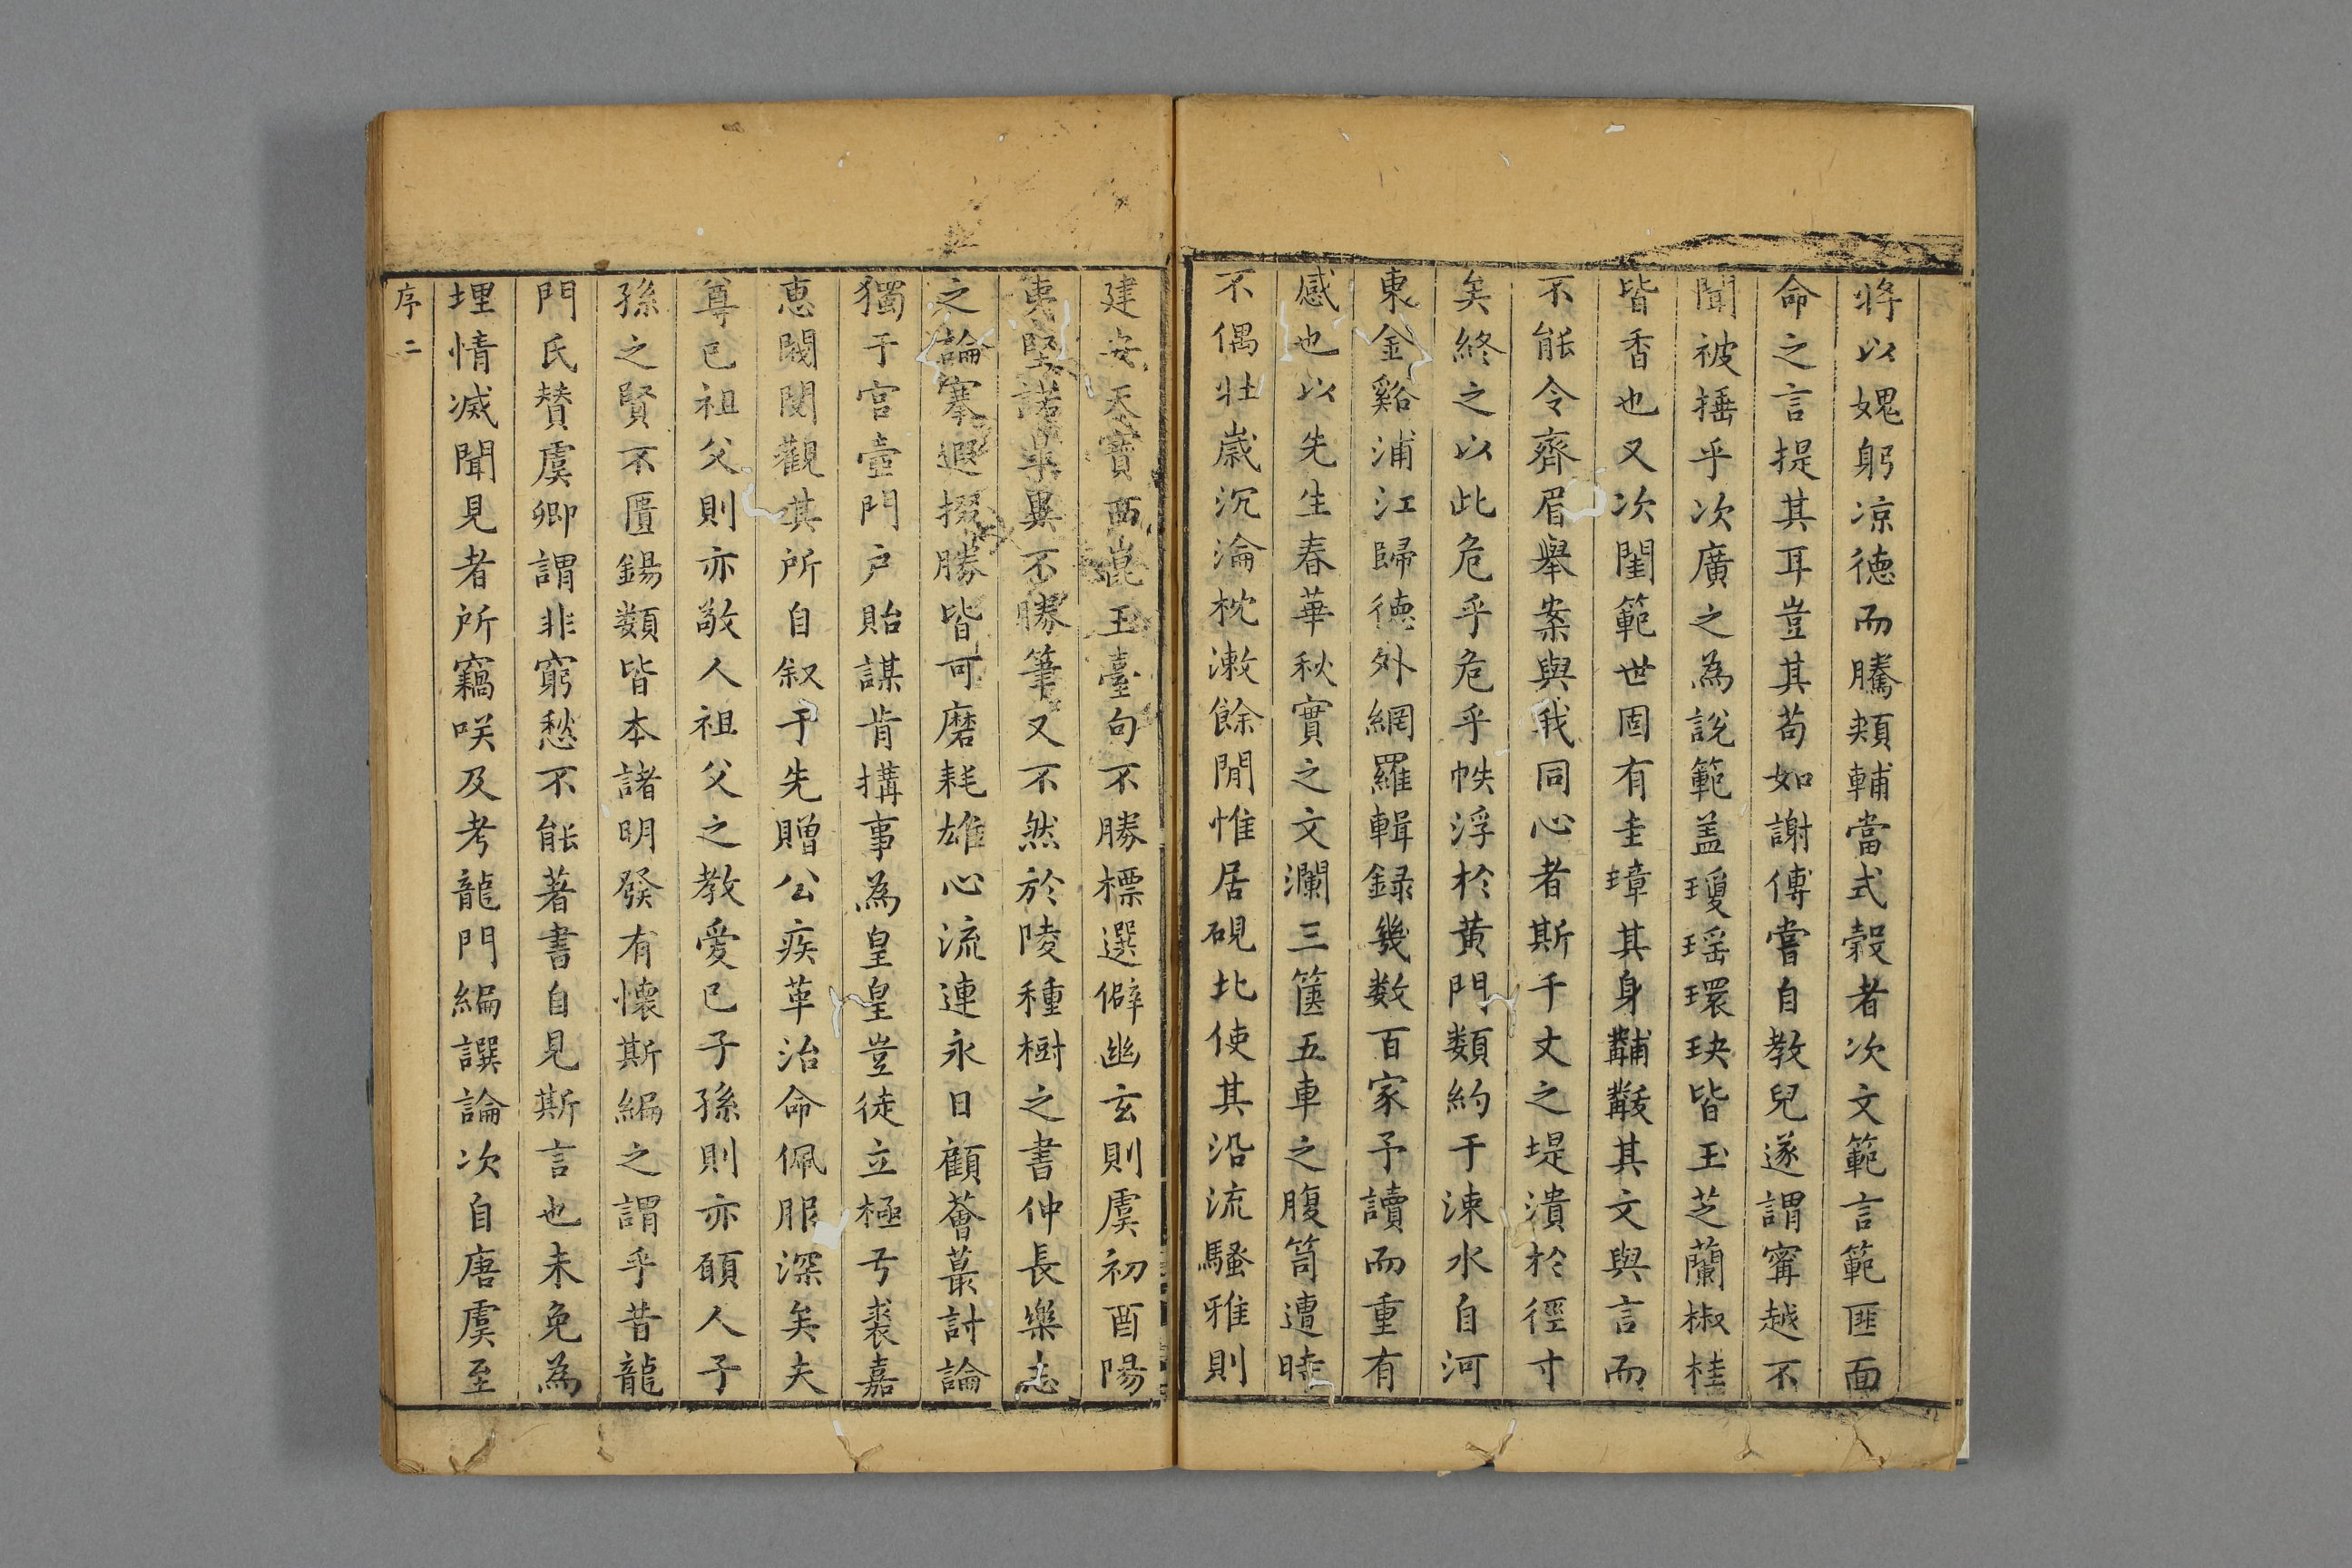 將以媿躬涼德而騰頰輔當式穀者次文範言範匪面
命之言提其耳豈其苟如謝傅嘗自教兒遂謂甯越不
聞被捶乎次廣之為說範盖瓊瑶環玦皆玉芝蘭椒桂
皆香也又次閨範世固有圭璋其身黼黻其文與言而
不能令齊眉舉案與我同心者斯千丈之堤潰於徑寸
矣終之以此危乎危乎帙浮於黄門類約于涑水自河
東金谿浦江歸德外網羅輯録幾数百家予讀而重有
感也以先生春華秋實之文瀾三篋五車之腹笥遭時
不偶壮歳沉淪枕漱餘閒惟居硯北使其沿流騷雅則
建安天寶西崑玉臺句不勝標選僻幽玄則虞初酉陽
夷堅諾皐異不勝筆又不然於陵種樹之書仲長樂志
之論搴遐掇勝皆可磨耗雄心流連永日顧薈蕞討論
獨于宫壼門戶貽謀肯搆事為皇皇豈徒立極弓裘嘉
惠閥閱觀其所自叙于先贈公疾革治命佩服深矣夫
尊已祖父則亦敬人祖父之教愛已子孫則亦願人子
孫之賢不匱錫類皆本諸明發有懐斯編之謂乎昔龍
門氏賛虞卿謂非窮愁不能著書自見斯言也未免為
埋情滅聞見者所竊咲及考龍門編譔論次自唐虞至
序 二